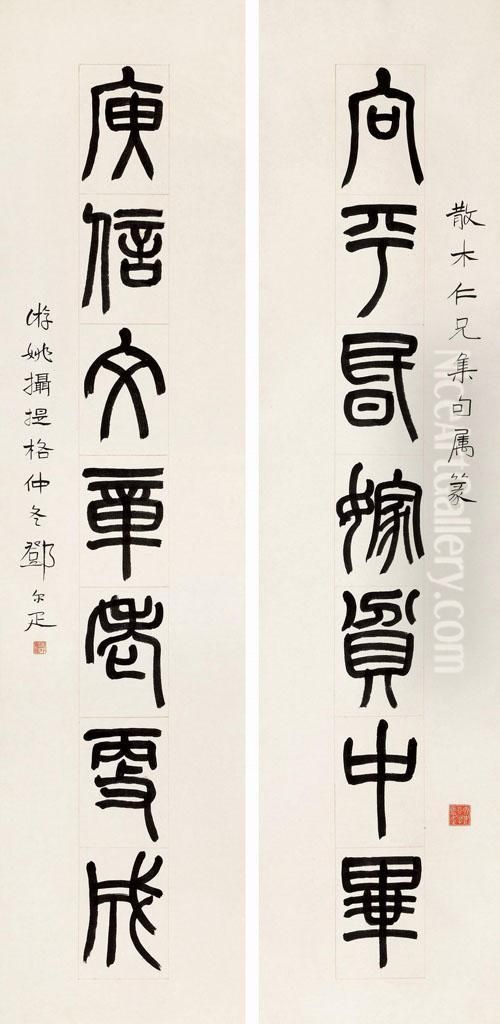 向平昏嫁貧中畢
散木仁兄集句属篆
庾信文章老更成
游姚攝提格仲冬鄧尔疋
NiceArtGallery.com